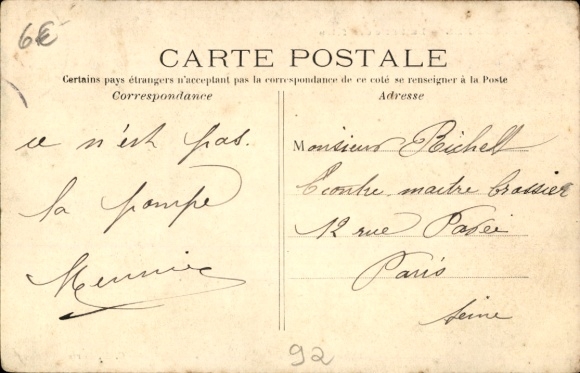 6€
CARTE POSTALE
Certains pays étrangers n'acceptant pas la correspondance de ce coté se renseigner à la Poste
Correspondance
ce n'est pas
la pompe
Meunier
Adresse
Monsieur Richell
maitre brossier
12 rue Pavée
Paris
Seine
92